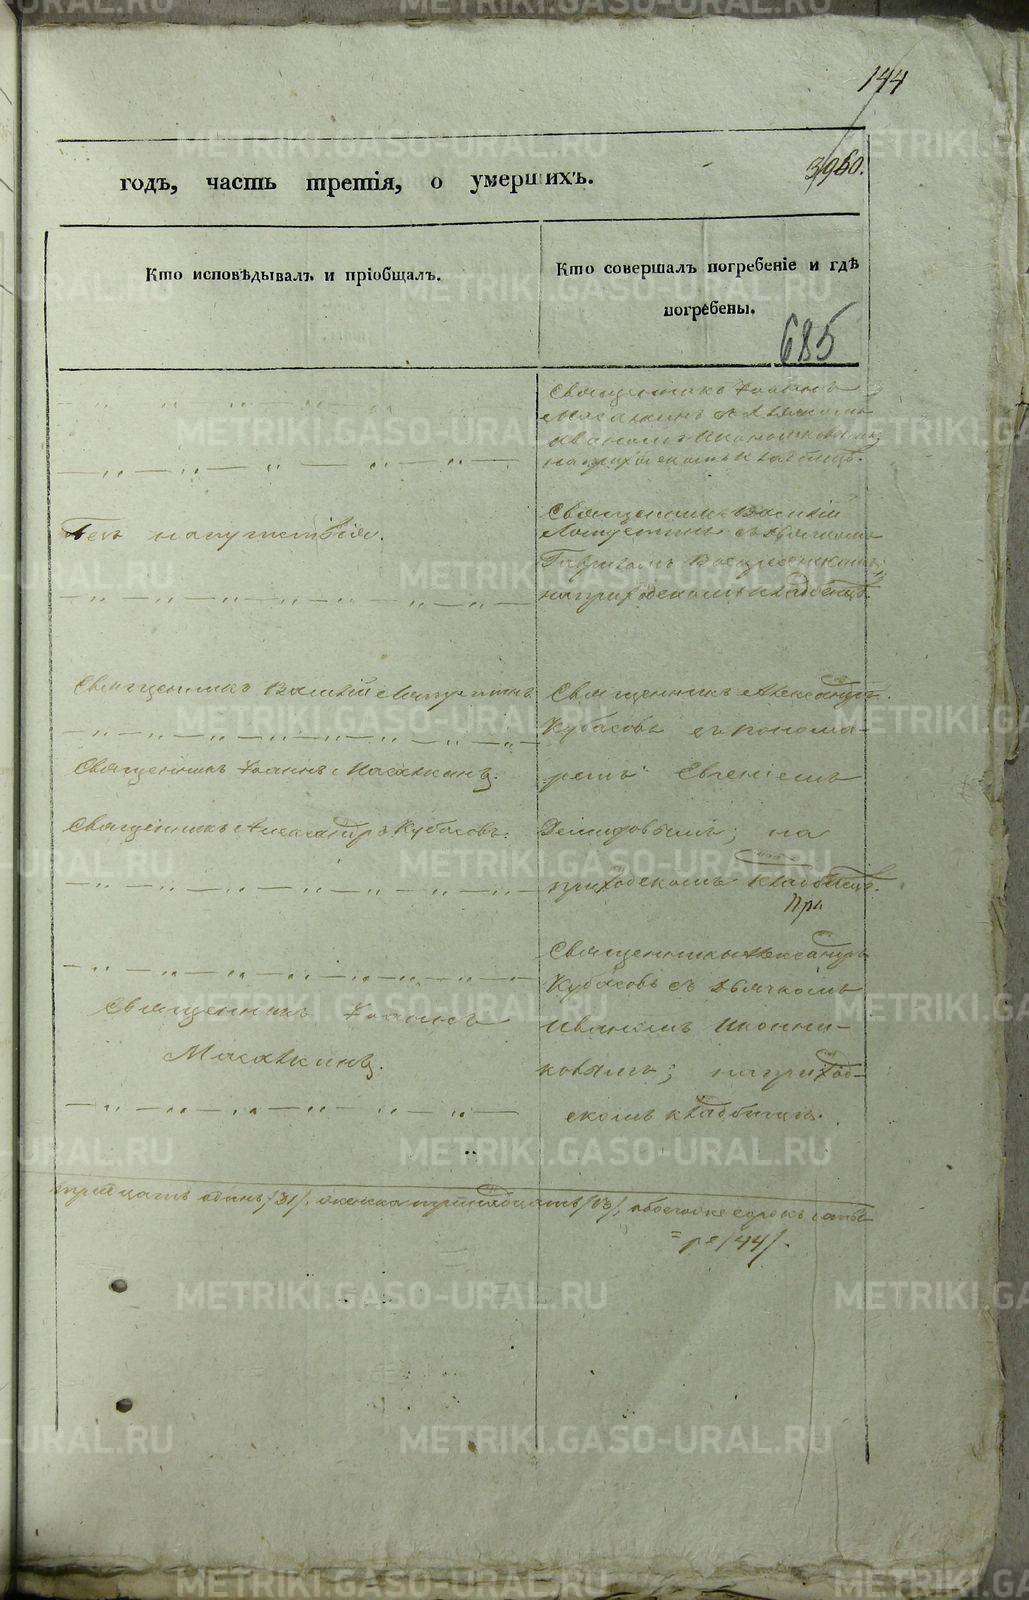 144
3960.
годъ, часть третія, о умершихъ.
Кто исповѣдывалъ и пріобщалъ.
Кто совершалъ погребеніе и гдѣ
погребены.
685
Священникъ Іоаннъ
Масалкинъ съ дьячкомъ
Иваномъ
на приходскомъ кладбищѣ.
Безъ напутствія.
Священникъ Василій
съ дьячкомъ
Гавріиломъ Воскресенскимъ;
на приходскомъ кладбищѣ.
Священникъ Василій
Священникъ Іоаннъ Масалкинъ.
Священникъ Александръ Кубасовъ.
Священникъ Александръ
Кубасовъ съ понома-
ремъ Евгеніемъ
Демидовымъ; на
приходскомъ кладбищѣ.
При
Священникъ Іоаннъ
Масалкинъ.
Священникъ Александръ
Кубасовъ съ дьячкомъ
Иваномъ Иконни-
ковымъ; на приход-
скомъ кладбищѣ.
тридцать одинъ /31/, женска тринадцать /13/, обоего же сорокъ четы-
=ре /44/.
METRIKI.GASO-URAL.RU